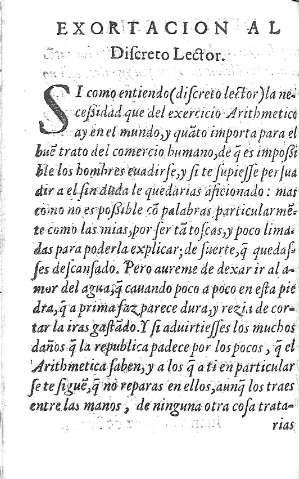 EXORTACION AL
Discreto Lector.
SI como entiendo (discreto lector) la ne-
cessidad que del exercicio Arithmetico
ay en el mundo, y quãto importa para el
buẽ trato del comercio humano, de q̃ es impossi
ble los hombres euadirse, y si te supiesse persua
dir a el sin duda le quedarias aficionado: mas
como no es possible cõ palabras particularmẽ-
te como las mias, por ser tã toscas, y poco lima-
das para poderla explicar; de suerte, q̃ quedas-
ses descansado. Pero aureme de dexar ir al a-
mor del agua, q̃ cauando poco a poco en esta pie
dra, q̃ a prima faz parece dura, y rezia de cor-
tar la iras gastãdo. Y si aduirtiesses los muchos
daños q̃ la republica padece por los pocos, q̃ el
Arithmetica saben, y a los q̃ a ti en particular
se te siguẽ, q̃ no reparas en ellos, aunq̃ los traes
entre las manos, de ninguna otra cosa trata-
rias